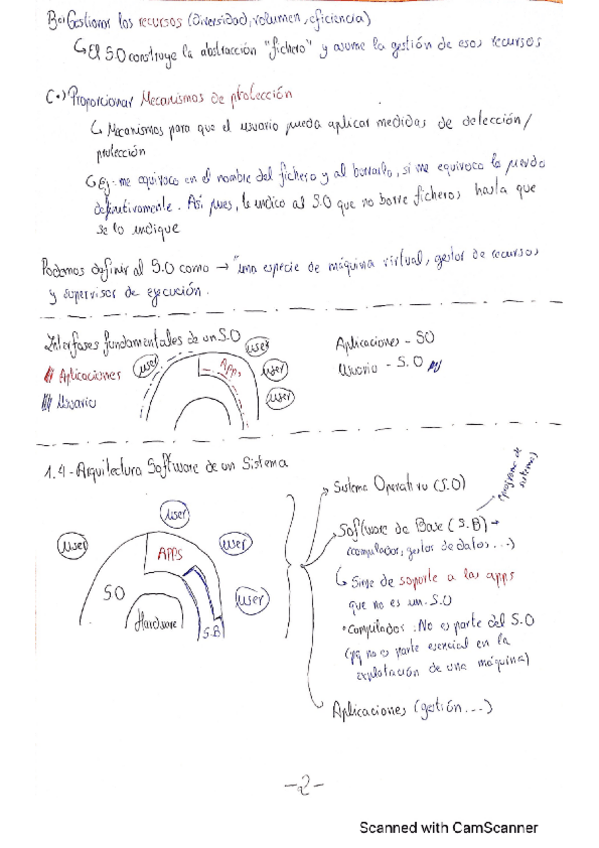 B.) Gestionar los recursos (diversidad, volumen, eficiencia)
↳ El S.O construye la abstracción "fichero" y asume la gestión de esos recursos
C.) Proporcionar Mecanismos de protección
↳ Mecanismos para que el usuario pueda aplicar medidas de detección/
protección
↳ Ej: me equivoco en el nombre del fichero y al borrarlo, si me equivoco lo pierdo
definitivamente. Así pues, le indico al S.O que no borre ficheros hasta que
se lo indique
Podemos definir al S.O como → "una especie de máquina virtual, gestor de recursos
y supervisor de ejecución.
Interfases fundamentales de un S.O
Aplicaciones
Usuario
user
user
user
user
Apps
Aplicaciones - SO
Usuario - S.O
1.4.- Arquitectura Software de un Sistema
user
user
user
user
APPS
SO
Hardware
S.B
Sistema Operativo (S.O)
Software de Base (S.B) →
programa de
sistemas
(compilador, gestor de datos...)
↳ Sirve de soporte a las apps
que no es un S.O
• Compilador: No es parte del S.O
(pq no es parte esencial en la
explotación de una máquina)
Aplicaciones (gestión...)
-2-
Scanned with CamScanner